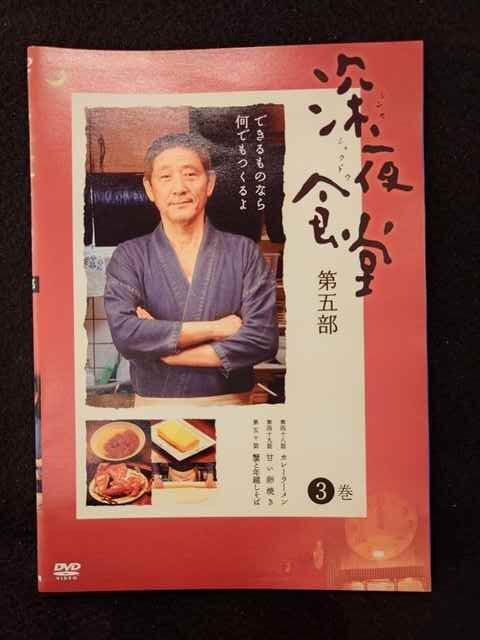 深夜食堂
シンヤ
ショクドウ
第五部
できるものなら
何でもつくるよ
第四十八話 カレーラーメン
第四十九話 甘い卵焼き
第五十話 蟹と年越しそば
3巻
DVD
VIDEO